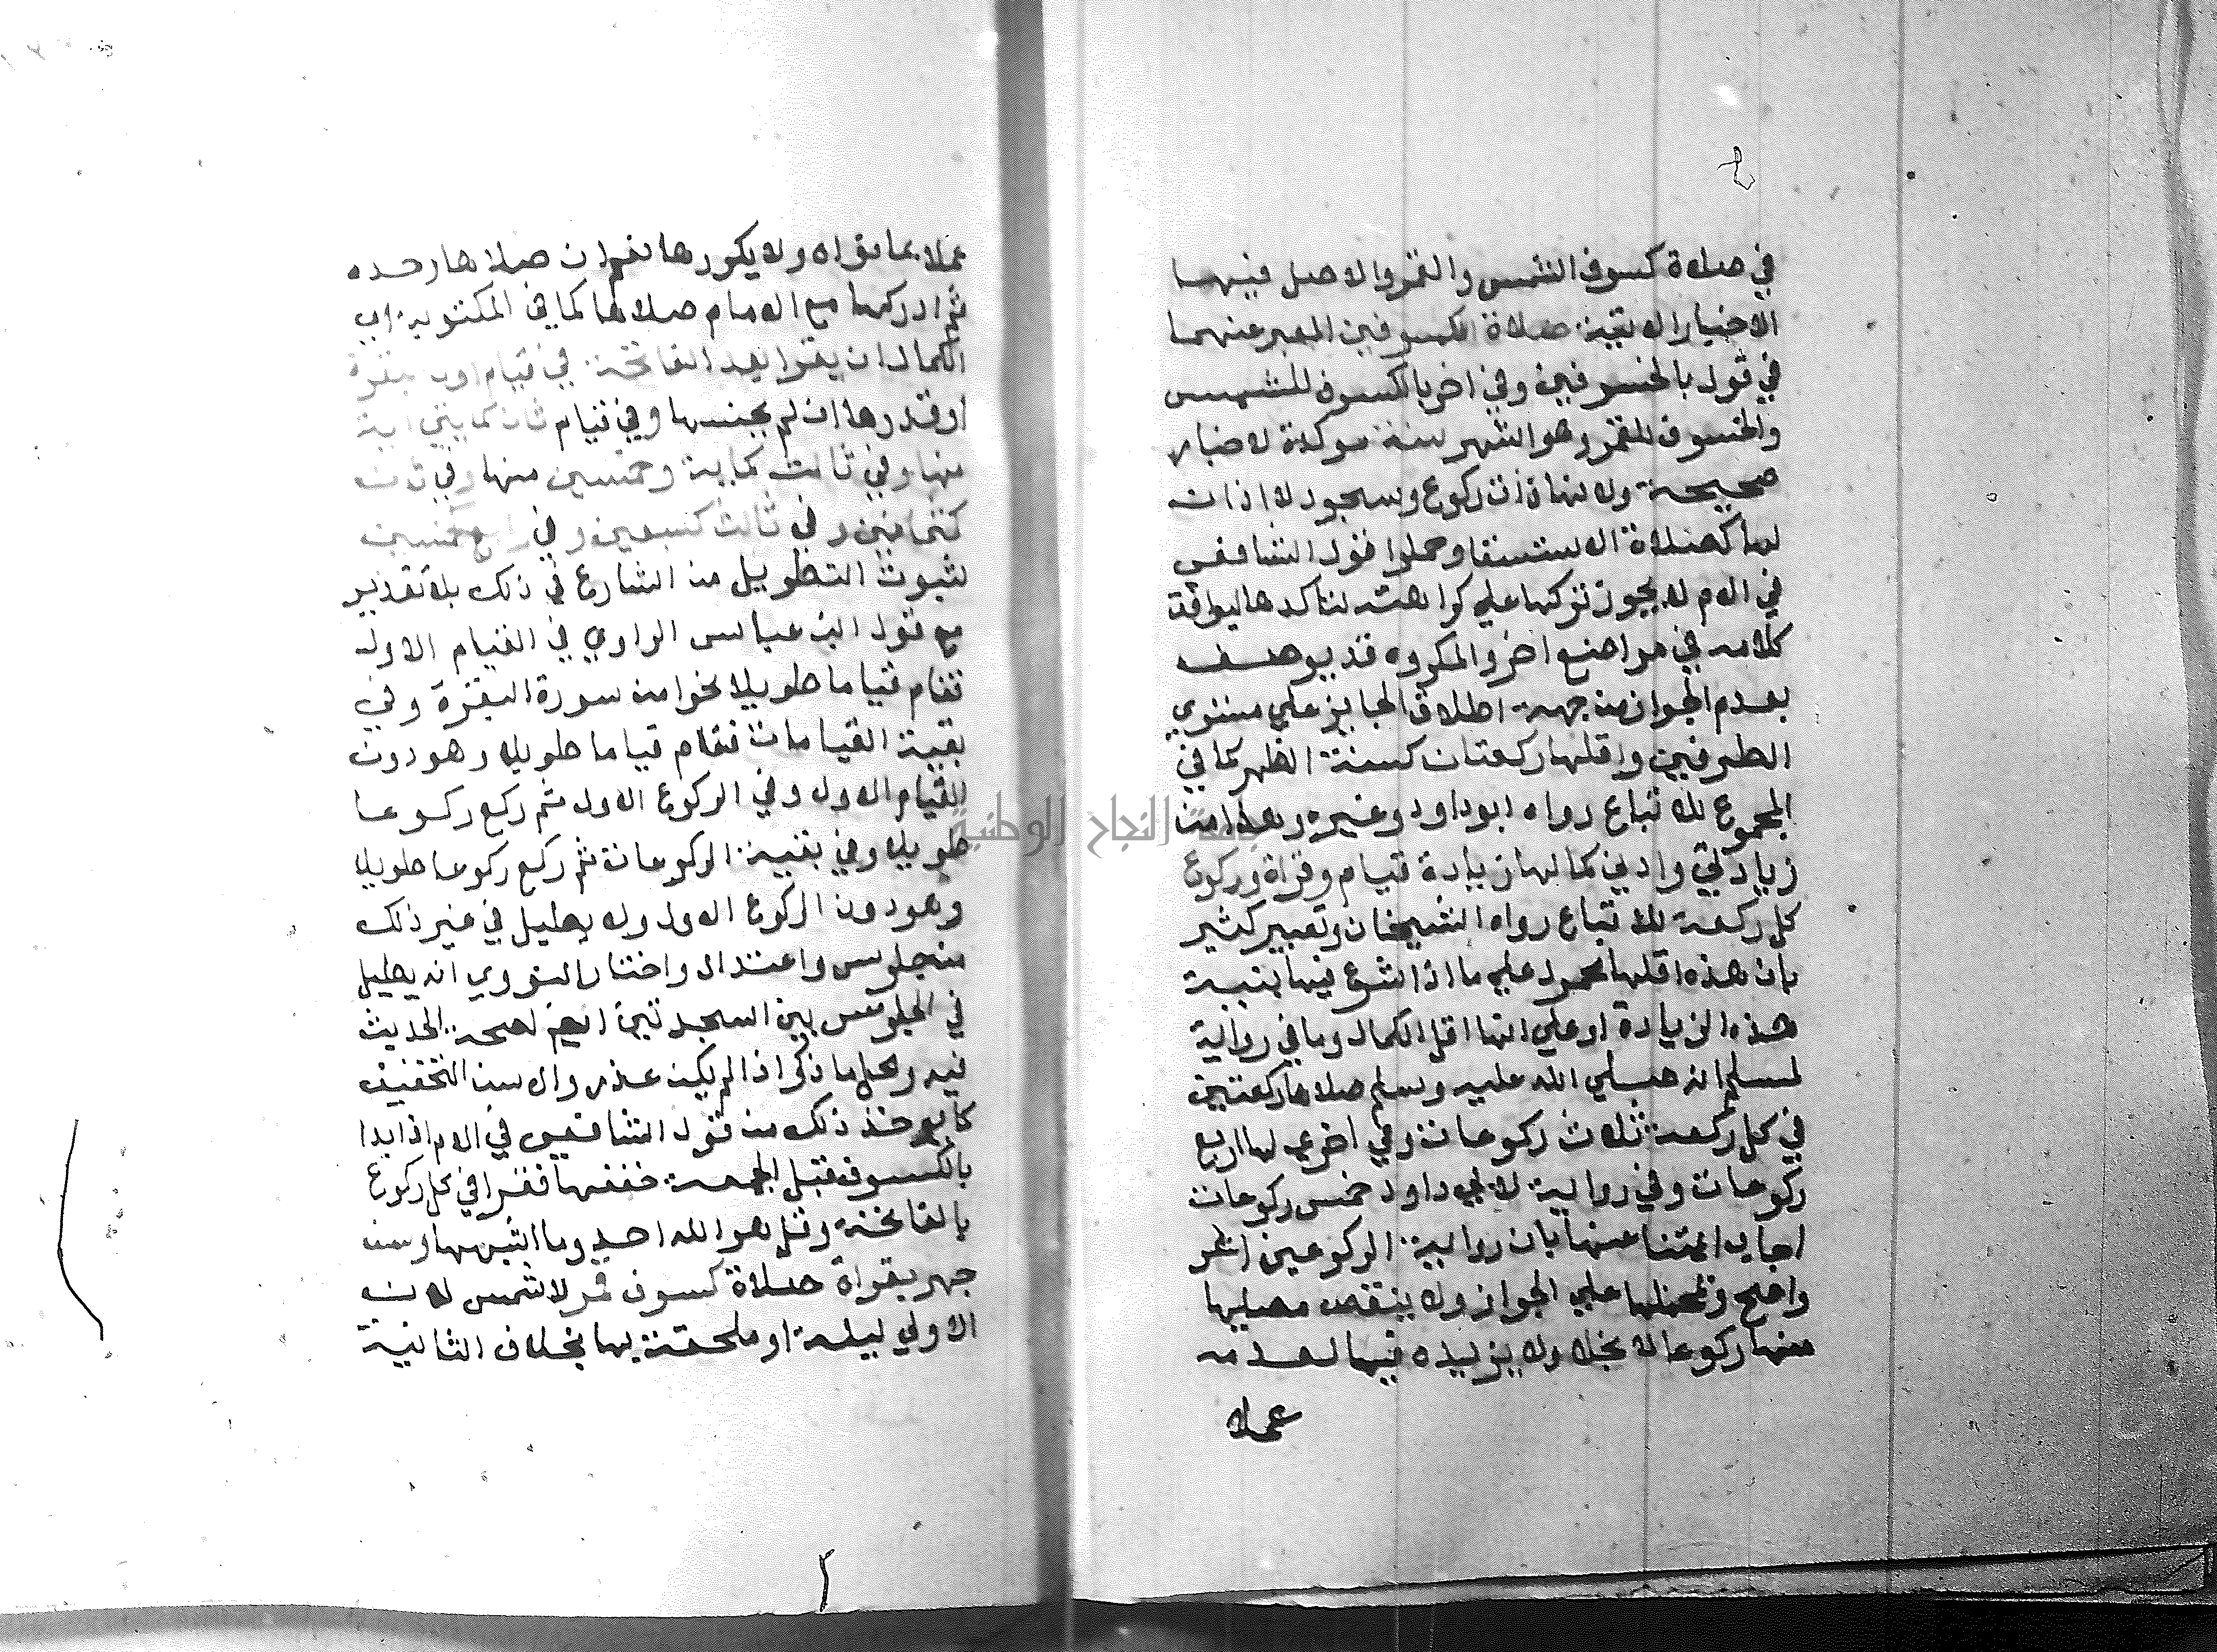 في صلاة كسوف الشمس والقمر والاصل فيهما
الاخبار الاتية صلاة الكسوفين المعبر عنهما
في قول بالخسوفين وفي اخر بالكسوف للشمس
والخسوف للقمر وهو اشهر سنة موكدة لاخبار
صحيحة ولانها ذات ركوع وسجود لا اذان
لها كصلاة الاستسقا وحملوا قول الشافعي
في الام لا يجوز تركها علي كراهته لتاكدها ليوافق
كلامه في مواضع اخر والمكروه قد يوصف
بعدم الجواز من جهة اطلاق الجايز علي مستوي
الطرفين واقلها ركعتان كسنة الظهر كما في
المجموع للاتباع رواه ابو داود وغيره وهذا من
زيادتي وادني كمالها زيادة قيام وقراة وركوع
كل ركعة للاتباع رواه الشيخان وتعبير كثير
بان هذه اقلها محمول علي ما اذا شرع فيها بنية
هذه الزيادة او علي انها اقل الكمال وما في رواية
لمسلم انه صلي الله عليه وسلم صلاها ركعتين
في كل ركعة ثلاث ركوعات وفي اخري لها اربع
ركوعات وفي رواية لابي داود خمس ركوعات
اجاب ايمتنا عنها بان رواية الركوعين اشهر
واصح وتحملها علي الجواز ولا ينقص مصليها
منها ركوعا لانجلا ولا يزيده فيها لعدمه
عملا
عملا بما نواه ولا يكررها نعم ان صلاها وحده
ثم ادركها مع الامام صلاها كما في المكتوبة
الكمال ان يقرا بعد الفاتحة في قيام اول بقرة
او قدرها ان لم يحسنها وفي قيام ثان كمايتي اية
منها وفي ثالث كماية وخمسين منها وفي
كثمانين وفي ثالث كسبعين وفي رابع كخمسين
لثبوت التطويل من الشارع في ذلك بلا تقدير
مع قول ابن عباس الراوي في القيام الاول
فقام قياما طويلا نحوا من سورة البقرة وفي
بقية القيامات فقام قياما طويلا وهو دون
القيام الاول وفي الركوع الاول ثم ركع ركوعا
طويلا وفي بقية الركوعات ثم ركع ركوعا طويلا
وهو دون الركوع الاول ولا يطيل في غير ذلك
من جلوس واعتدال واختار النووي انه يطيل
في الجلوس بين السجدتين ايضا لصحة الحديث
فيه ومحل ما ذكر اذا لم يكن عذر والا سن التخفيف
كما يوخذ ذلك من قول الشافعي في الام اذا بدا
بالكسوف قبل الجمعة خففها فقرا في كل ركوع
بالفاتحة وقل هو الله احد وما اشبهها وسن
جهر بقراة صلاة كسوف قمر لا شمس لان
الاولي ليلية او ملحقة بها بخلاف الثانية
جامعة النجاح الوطنية